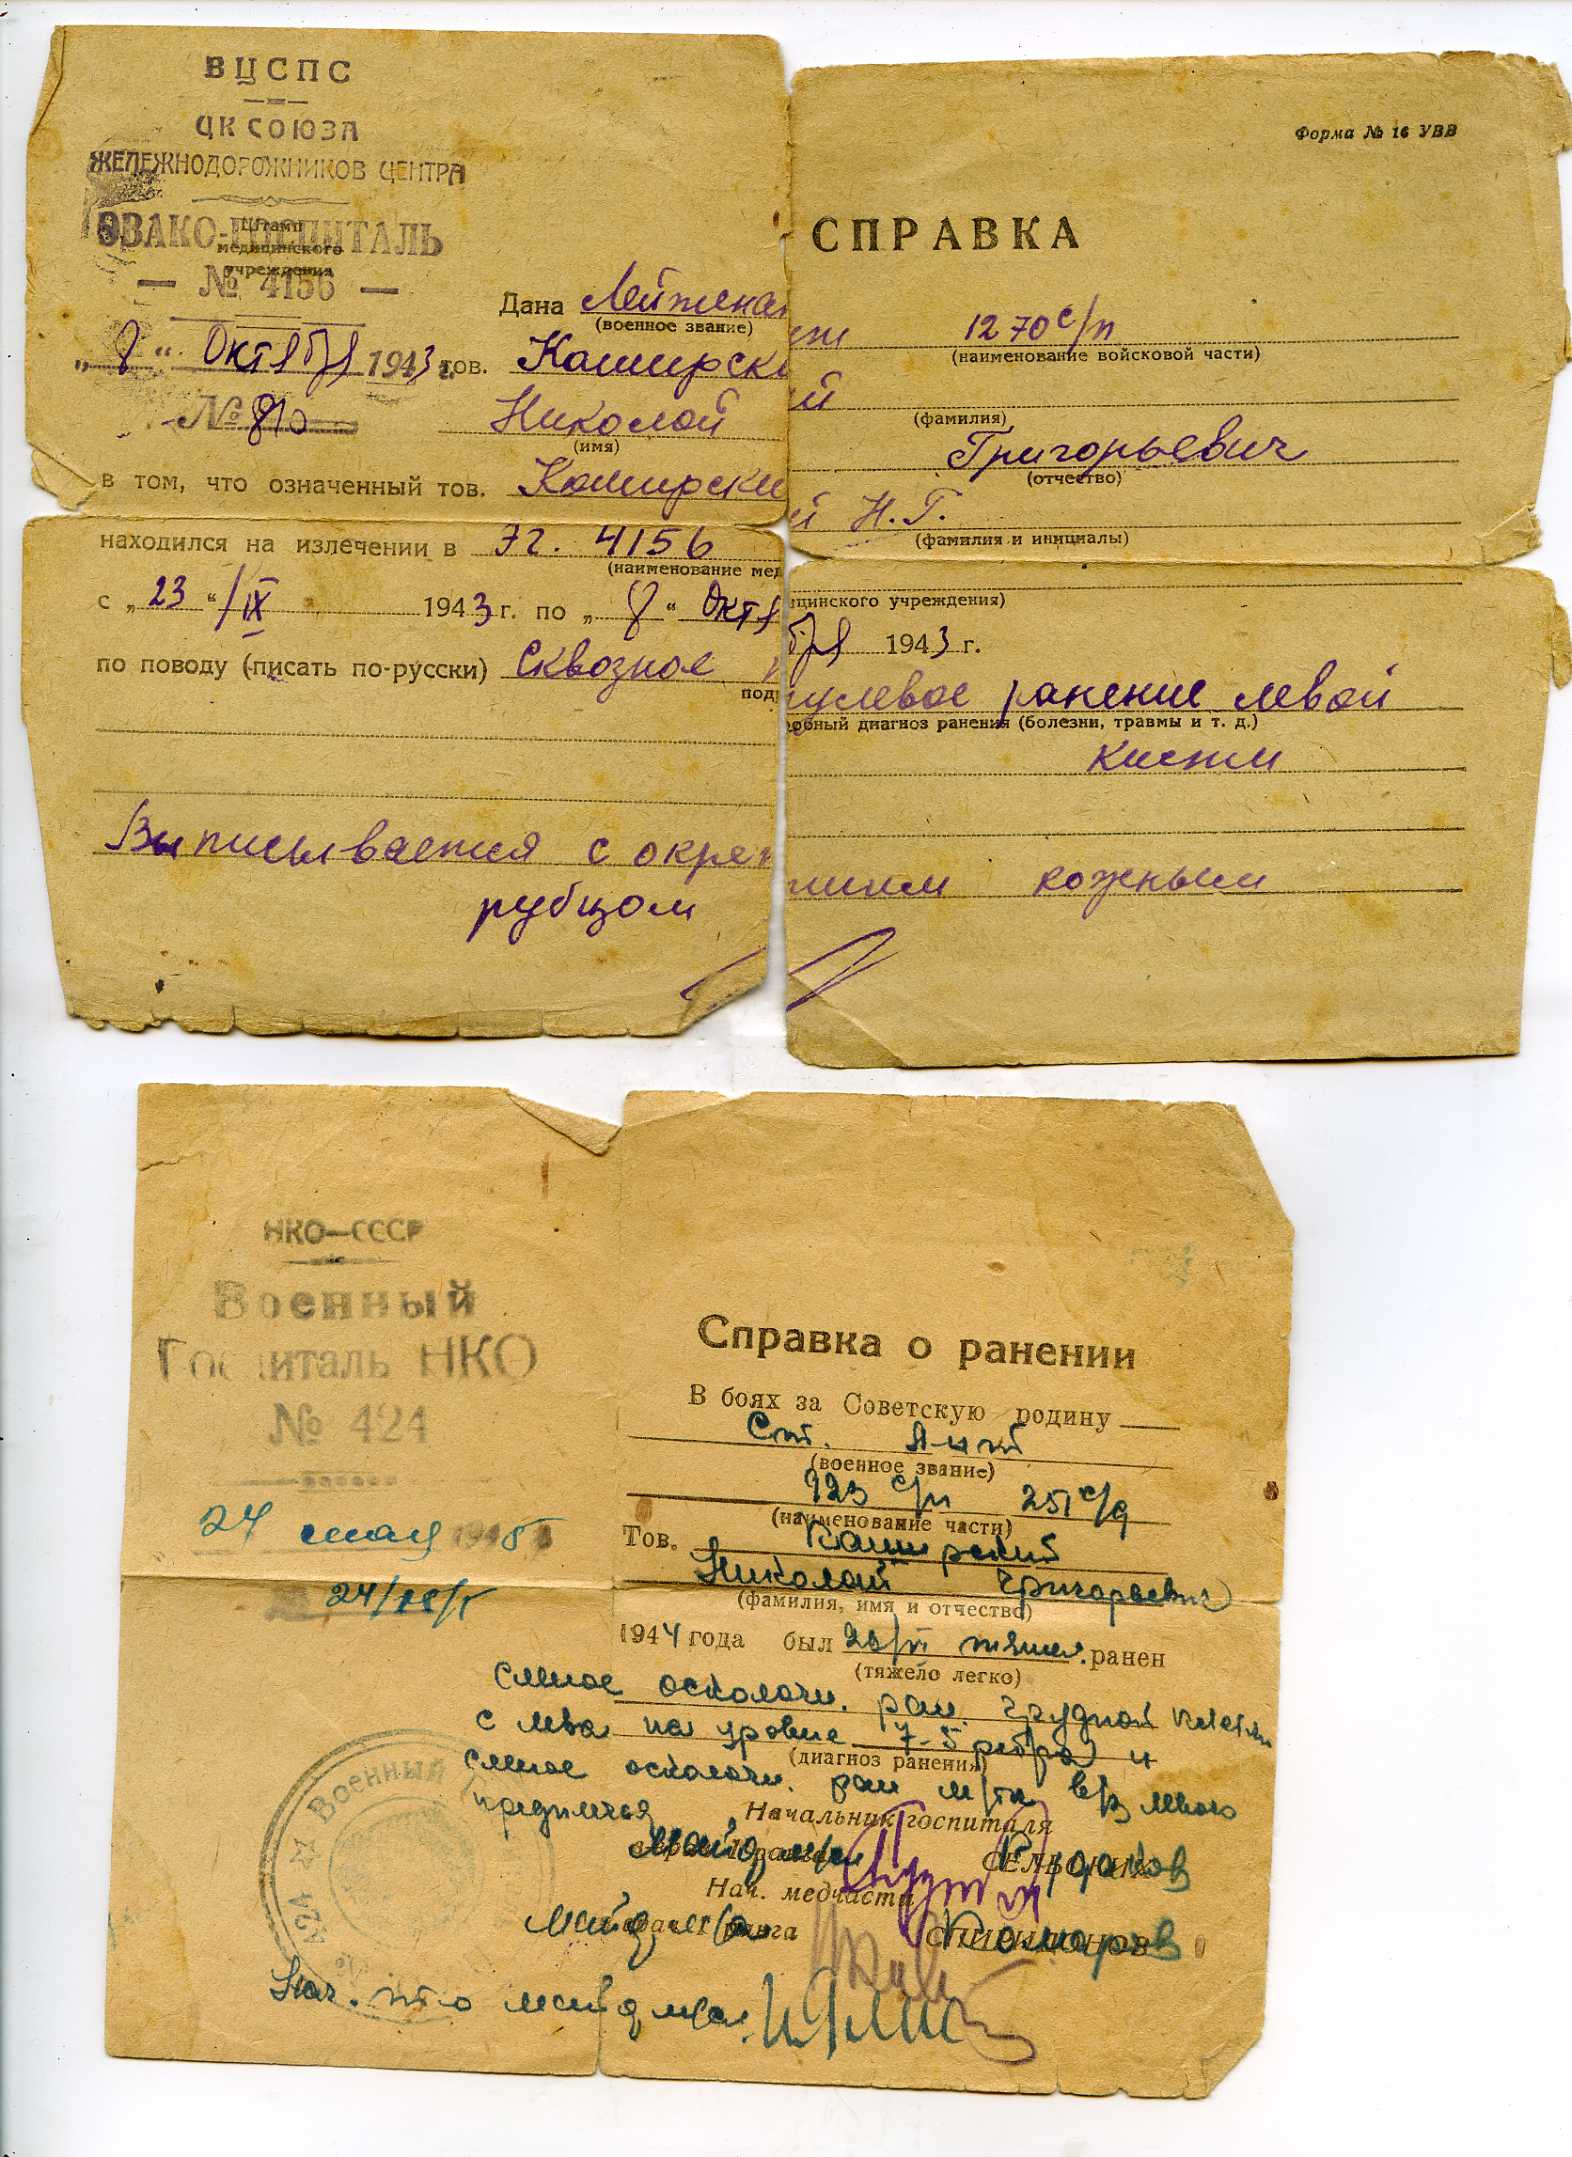 ВЦСПС
ЦК СОЮЗА
ЖЕЛЕЖНОДОРОЖНИКОВ ЦЕНТРА
ЭВАКО-ГОСПИТАЛЬ
Штамп
медицинского
учреждения
— № 4156 —
„8“ Октября 1943 г.
№ 810
Форма № 16 УВВ
СПРАВКА
Дана Лейтенант 1270 с/п
(военное звание) (наименование войсковой части)
тов. Каширский
(фамилия)
Николай Григорьевич
(имя) (отчество)
в том, что означенный тов. Каширский Н.Г.
(фамилия и инициалы)
находился на излечении в Эг. 4156
(наименование медицинского учреждения)
с „23“ /IX 1943 г. по „8“ Октября 1943 г.
по поводу (писать по-русски) Сквозное пулевое ранение левой
подробный диагноз ранения (болезни, травмы и т. д.)
кисти
Выписывается с окрепшим кожным
рубцом
НКО—СССР
Военный
Госпиталь НКО
№ 424
24 мая 1945
Справка о ранении
В боях за Советскую родину
Ст. Л-нт
(военное звание)
923 с/п 251 с/д
(наименование части)
Тов. Каширский
Николай Григорьевич
(фамилия, имя и отчество)
1944 года был 26/VI тяжел. ранен
(тяжело легко)
Слепое осколочн. ран. грудной клетки
слева на уровне 7-5 ребра и
(диагноз ранения)
слепое осколочн. ран м/тк в/з левого
предплечья
Начальник госпиталя
майор м/с
Нач. медчасти
майор м/с Комаров
Военный
№ 424
Нач. майор м/с